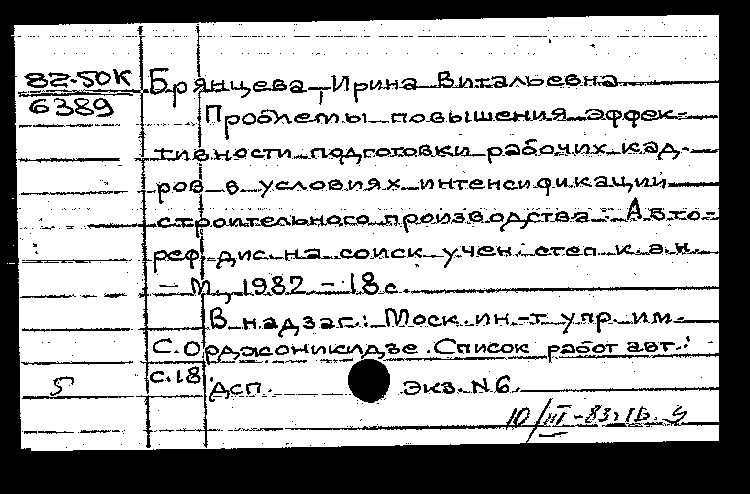 82-50К Брянцева, Ирина Витальевна
6389
Проблемы повышения эффек-
тивности подготовки рабочих кад-
ров в условиях интенсификации
строительного производства: Авто-
реф дис. на соиск учен. степ к.э.н.
– М., 1982. – 18 с.
В надзаг.: Моск. ин-т упр. им.
С. Орджоникидзе. Список работ авт.:
с. 18
5 Дсп. Экз. N 6.
10/III-83г